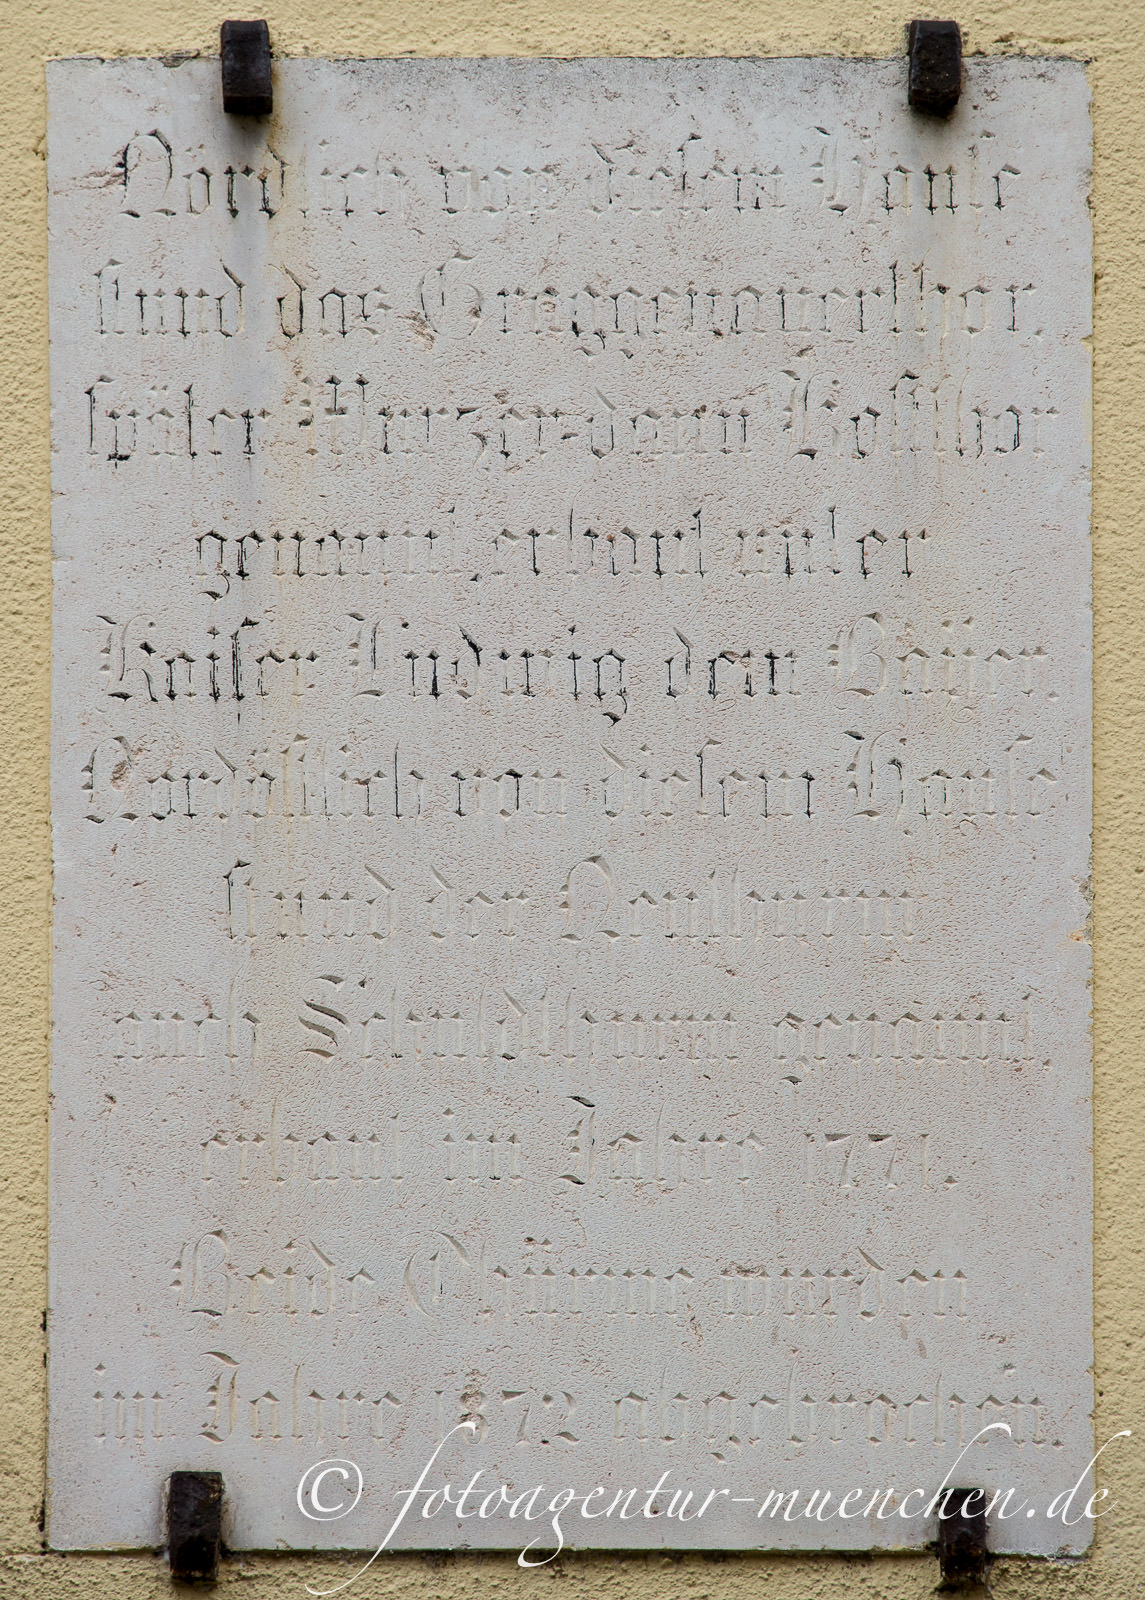 Nördlich von diesem Hause
stund das Graggenauerthor,
später Wurzer-dann Kostthor
genannt, erbaut unter
Kaiser Ludwig dem Bayer.
Nordöstlich von diesem Hause
stund der Neuthurm
auch Schuldthurm genannt,
erbaut im Jahre 1771.
Beide Thürme wurden
im Jahre 1872 abgebrochen.
© fotoagentur-muenchen.de